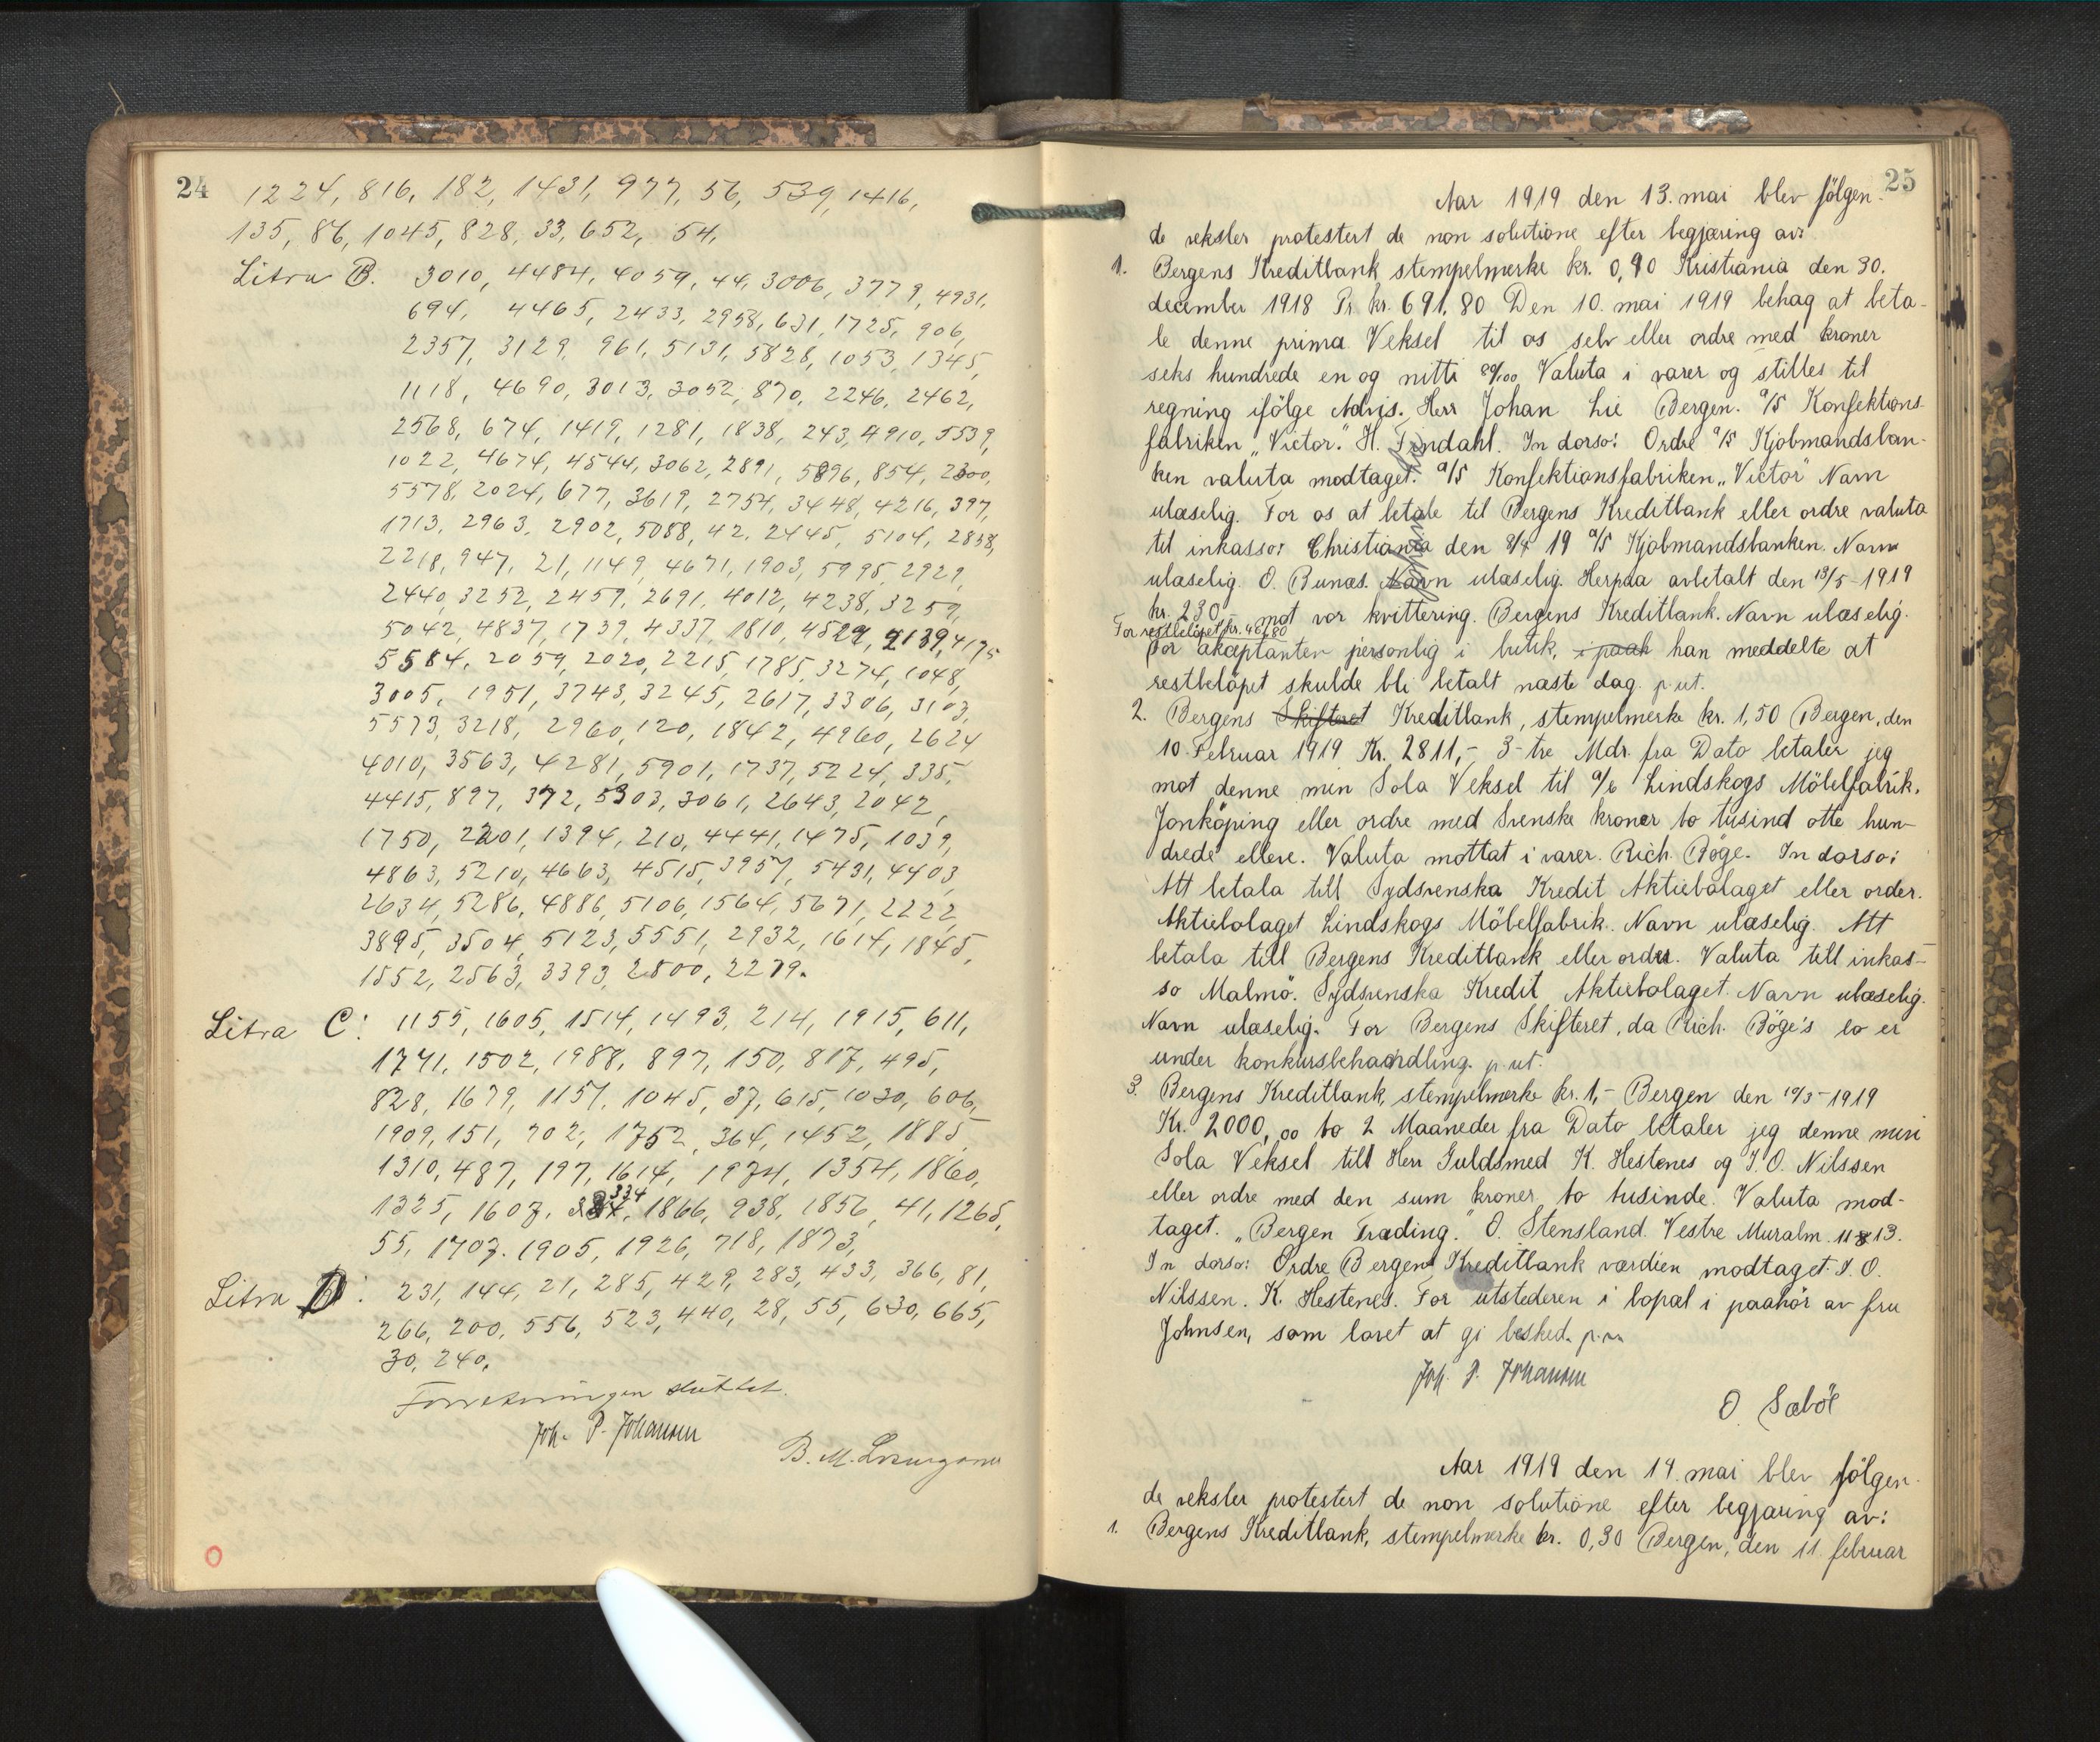 24
1224, 816, 182, 1431, 977, 56, 539, 1416,
135, 86, 1045, 828, 33, 652, 54,
Litra B. 3010, 4484, 4059, 44, 3006, 3779, 4931,
694, 4465, 2433, 2958, 631, 1725, 906,
2357, 3129, 961, 5131, 5828, 1053, 1345,
1118, 4690, 3013, 3052, 870, 2246, 2462,
2568, 674, 1419, 1281, 1838, 243, 4910, 5539,
1022, 4674, 4544, 3062, 2891, 5896, 854, 2300,
5578, 2024, 677, 3619, 2754, 3448, 4216, 397,
1713, 2963, 2902, 5088, 42, 2445, 5104, 2838,
2218, 947, 21, 1149, 4671, 1903, 5995, 2929,
2440, 3252, 2459, 2691, 4012, 4238, 3259,
5042, 4837, 1739, 4337, 1810, 4529, 2139, 4175
5584, 2059, 2020, 2215, 1785, 3274, 1048,
3005, 1951, 3743, 3245, 2617, 3306, 3103,
5573, 3218, 2960, 120, 1842, 4960, 2624
4010, 3563, 4281, 5901, 1737, 5224, 335,
4415, 897, 372, 5303, 3061, 2643, 2042,
1750, 2201, 1394, 210, 4441, 1475, 1039,
4863, 5210, 4663, 4515, 3957, 5431, 4403,
2634, 5286, 4886, 5106, 1564, 5671, 2222,
3895, 3504, 5123, 5551, 2932, 1614, 1845,
1552, 2563, 3393, 2800, 2279.
Litra C: 1155, 1605, 1514, 1493, 214, 1915, 611,
1741, 1502, 1988, 897, 150, 817, 495,
828, 1679, 1157, 1045, 37, 615, 1030, 606,
1909, 151, 702, 1752, 364, 1452, 1885,
1310, 487, 197, 1614, 1974, 1354, 1860,
1325, 1607, 334, 1866, 938, 1856, 41, 1265,
55, 1707, 1905, 1926, 718, 1873,
Litra D: 231, 144, 21, 285, 429, 283, 433, 366, 81,
266, 200, 556, 523, 440, 28, 55, 630, 665,
30, 240.
Forretningen sluttet.
Joh. P. Johansen
B. M.
25
Aar 1919 den 13. mai blev følgen-
de veksler protestert de non solutione efter begjæring av:
1. Bergens Kreditbank stempelmerke kr. 0,90 Kristiania den 30.
december 1918 Pr. kr. 691,80 Den 10. mai 1919 behag at beta-
le denne prima Veksel til os selv eller ordre med kroner
seks hundrede en og nitti 80/100 Valuta i varer og stilles til
regning ifölge Advis. Herr Johan Lie Bergen. a/s Konfektions-
fabriken „Victor." H. Tindahl. In dorso: Ordre a/s Kjøbmandsban-
ken valuta modtaget. a/s Konfektionsfabriken „Victor" Navn
ulæselig. For os at betale til Bergens Kreditbank eller ordre valuta
til inkasso: Christiania den 8/4 19 a/s Kjøbmandsbanken. Navn
ulæselig. O. Bunæs. Navn ulæselig. Herpaa avbetalt den 13/5-1919
kr. 230,- mot vor kvittering. Bergens Kreditbank. Navn ulæselig.
For restbeløpet kr. 461,80
For akseptanten personlig i butik, i paah han meddelte at
restbeløpet skulde bli betalt næste dag. p. ut.
2. Bergens Skifteret Kreditbank, stempelmerke kr. 1,50 Bergen, den
10. Februar 1919 Kr. 2811,- 3-tre Mdr. fra Dato betaler jeg
mot denne min Sola Veksel til a/b Lindskogs Möbelfabrik.
Jonköping eller ordre med Svenske kroner to tusind otte hun-
drede elleve. Valuta mottat i varer. Rich. Böge. In dorso:
Att betala till Sydsvenska Kredit Aktiebolaget eller order.
Aktiebolaget Lindskogs Möbelfabrik. Navn ulæselig. Att
betala till Bergens Kreditbank eller ordre. Valuta till inkas-
so Malmö. Sydsvenska Kredit Aktiebolaget. Navn ulæselig.
Navn ulæselig. For Bergens Skifteret, da Rich. Böge's bo er
under konkursbehandling. p. ut.
3. Bergens Kreditbank, stempelmerke kr. 1,- Bergen den 10/3-1919
Kr. 2000,00 to 2 Maaneder fra Dato betaler jeg denne min
Sola Veksel till Herr Guldsmed K. Hestenes og I. O. Nilssen
eller ordre med den sum kroner to tusinde. Valuta mod-
taget. „Bergen Trading." O. Stensland. Vestre Muralm. 11 & 13.
In dorso: Ordre Bergens Kreditbank værdien modtaget. I. O.
Nilssen. K. Hestenes. For utstederen i bopæl i paahör av fru
Johnsen, som lovet at gi besked.
Joh. P. Johansen
O. Sæböe
Aar 1919 den 14. mai blev følgen-
de veksler protestert de non solutione efter begjæring av:
1. Bergens Kreditbank, stempelmerke kr. 0,30 Bergen, den 11. februar